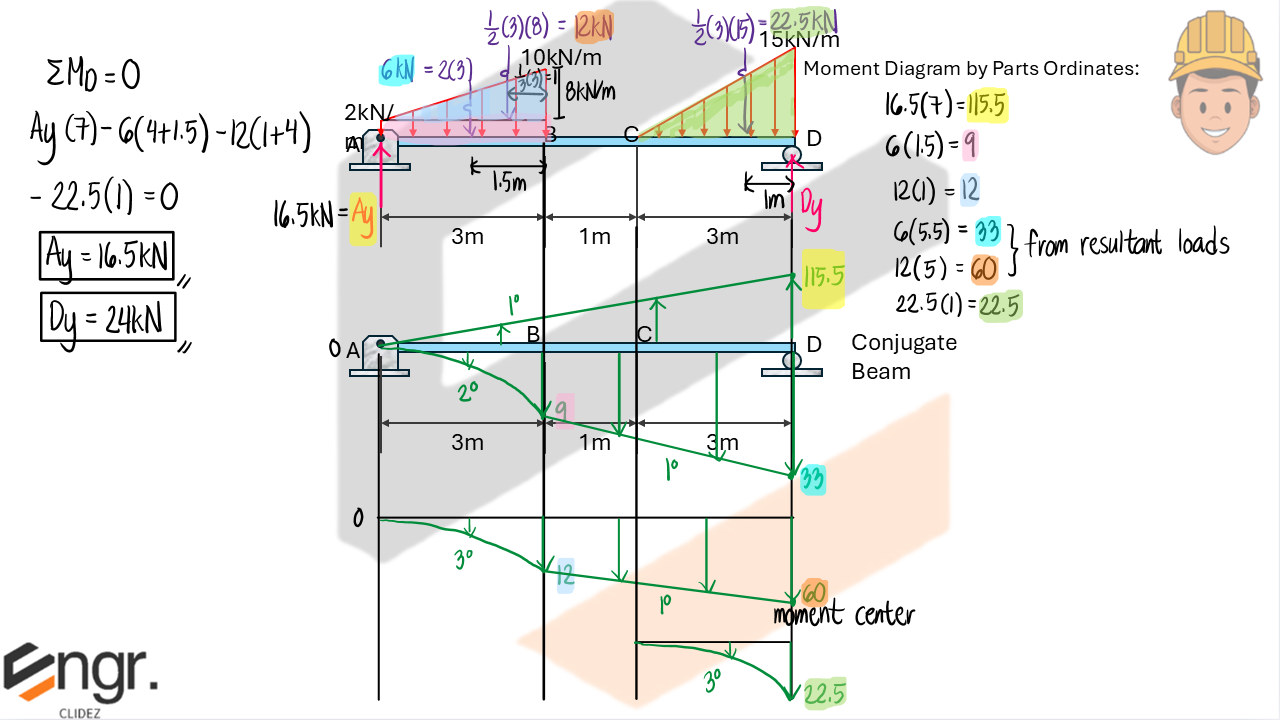 ΣM_D = 0
Ay (7) - 6(4+1.5) - 12(1+4)
- 22.5(1) = 0
Ay = 16.5kN
Dy = 24kN
½(3)(8) = 12kN
½(3)(15) = 22.5kN
6kN = 2(3)
10kN/m
15kN/m
8kN/m
2kN/
m
A
B
C
D
1.5m
1m
16.5kN = Ay
Dy
3m
1m
3m
Moment Diagram by Parts Ordinates:
16.5(7) = 115.5
6(1.5) = 9
12(1) = 12
6(5.5) = 33
12(5) = 60
from resultant loads
22.5(1) = 22.5
115.5
1°
0
A
B
C
D
Conjugate
Beam
2°
9
3m
1m
3m
1°
33
0
3°
12
1°
60
moment center
3°
22.5
Engr.
CLIDEZ